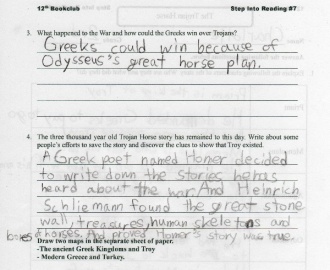 12th Bookclub Step Into Reading #7
3. What happened to the War and how could the Greeks win over Trojans?
Greeks could win because of
Odysseus's great horse plan.
4. The three thousand year old Trojan Horse story has remained to this day. Write about some
people's efforts to save the story and discover the clues to show that Troy existed.
A Greek poet named Homer decided
to write down the stories he has
heard about the war. And Heinrich
Schliemann found the great stone
wall, treasures, human skeletons and
bones & horses. And proved Homer's story was true.
Draw two maps in the separate sheet of paper.
-The ancient Greek Kingdoms and Troy
- Modern Greece and Turkey.